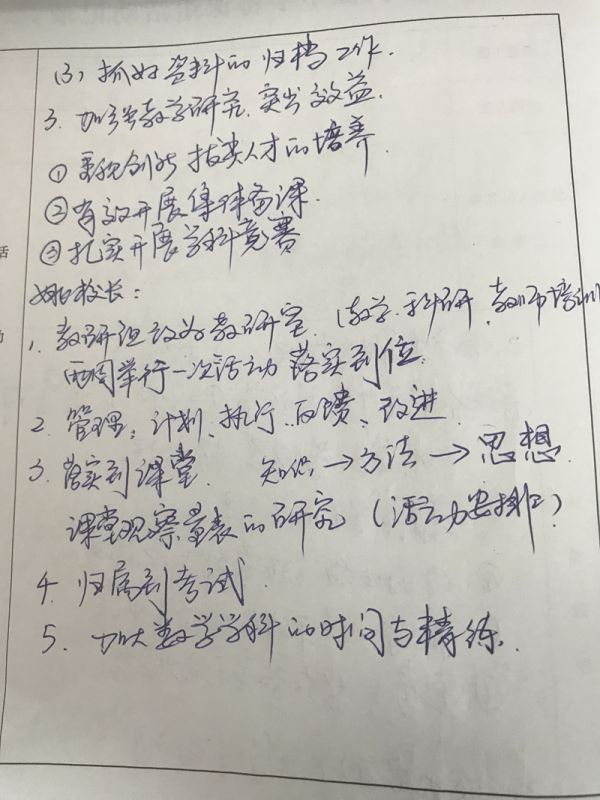 (3) 抓好资料的归档工作.
3. 加强教学研究, 突出效益.
① 重视创新拔尖人才的培养.
② 有效开展集体备课.
③ 扎实开展学科竞赛
校长:
1. 教研组改为教研室. (教学. 科研. 教师培训
两周举行一次活动 落实到位.
2. 管理: 计划、执行、反馈、改进
3. 落实到课堂. 知识→方法→思想.
课堂观察量表的研究 (活动安排)
4. 归属到考试.
5. 加大数学学科的时间与精练.
活